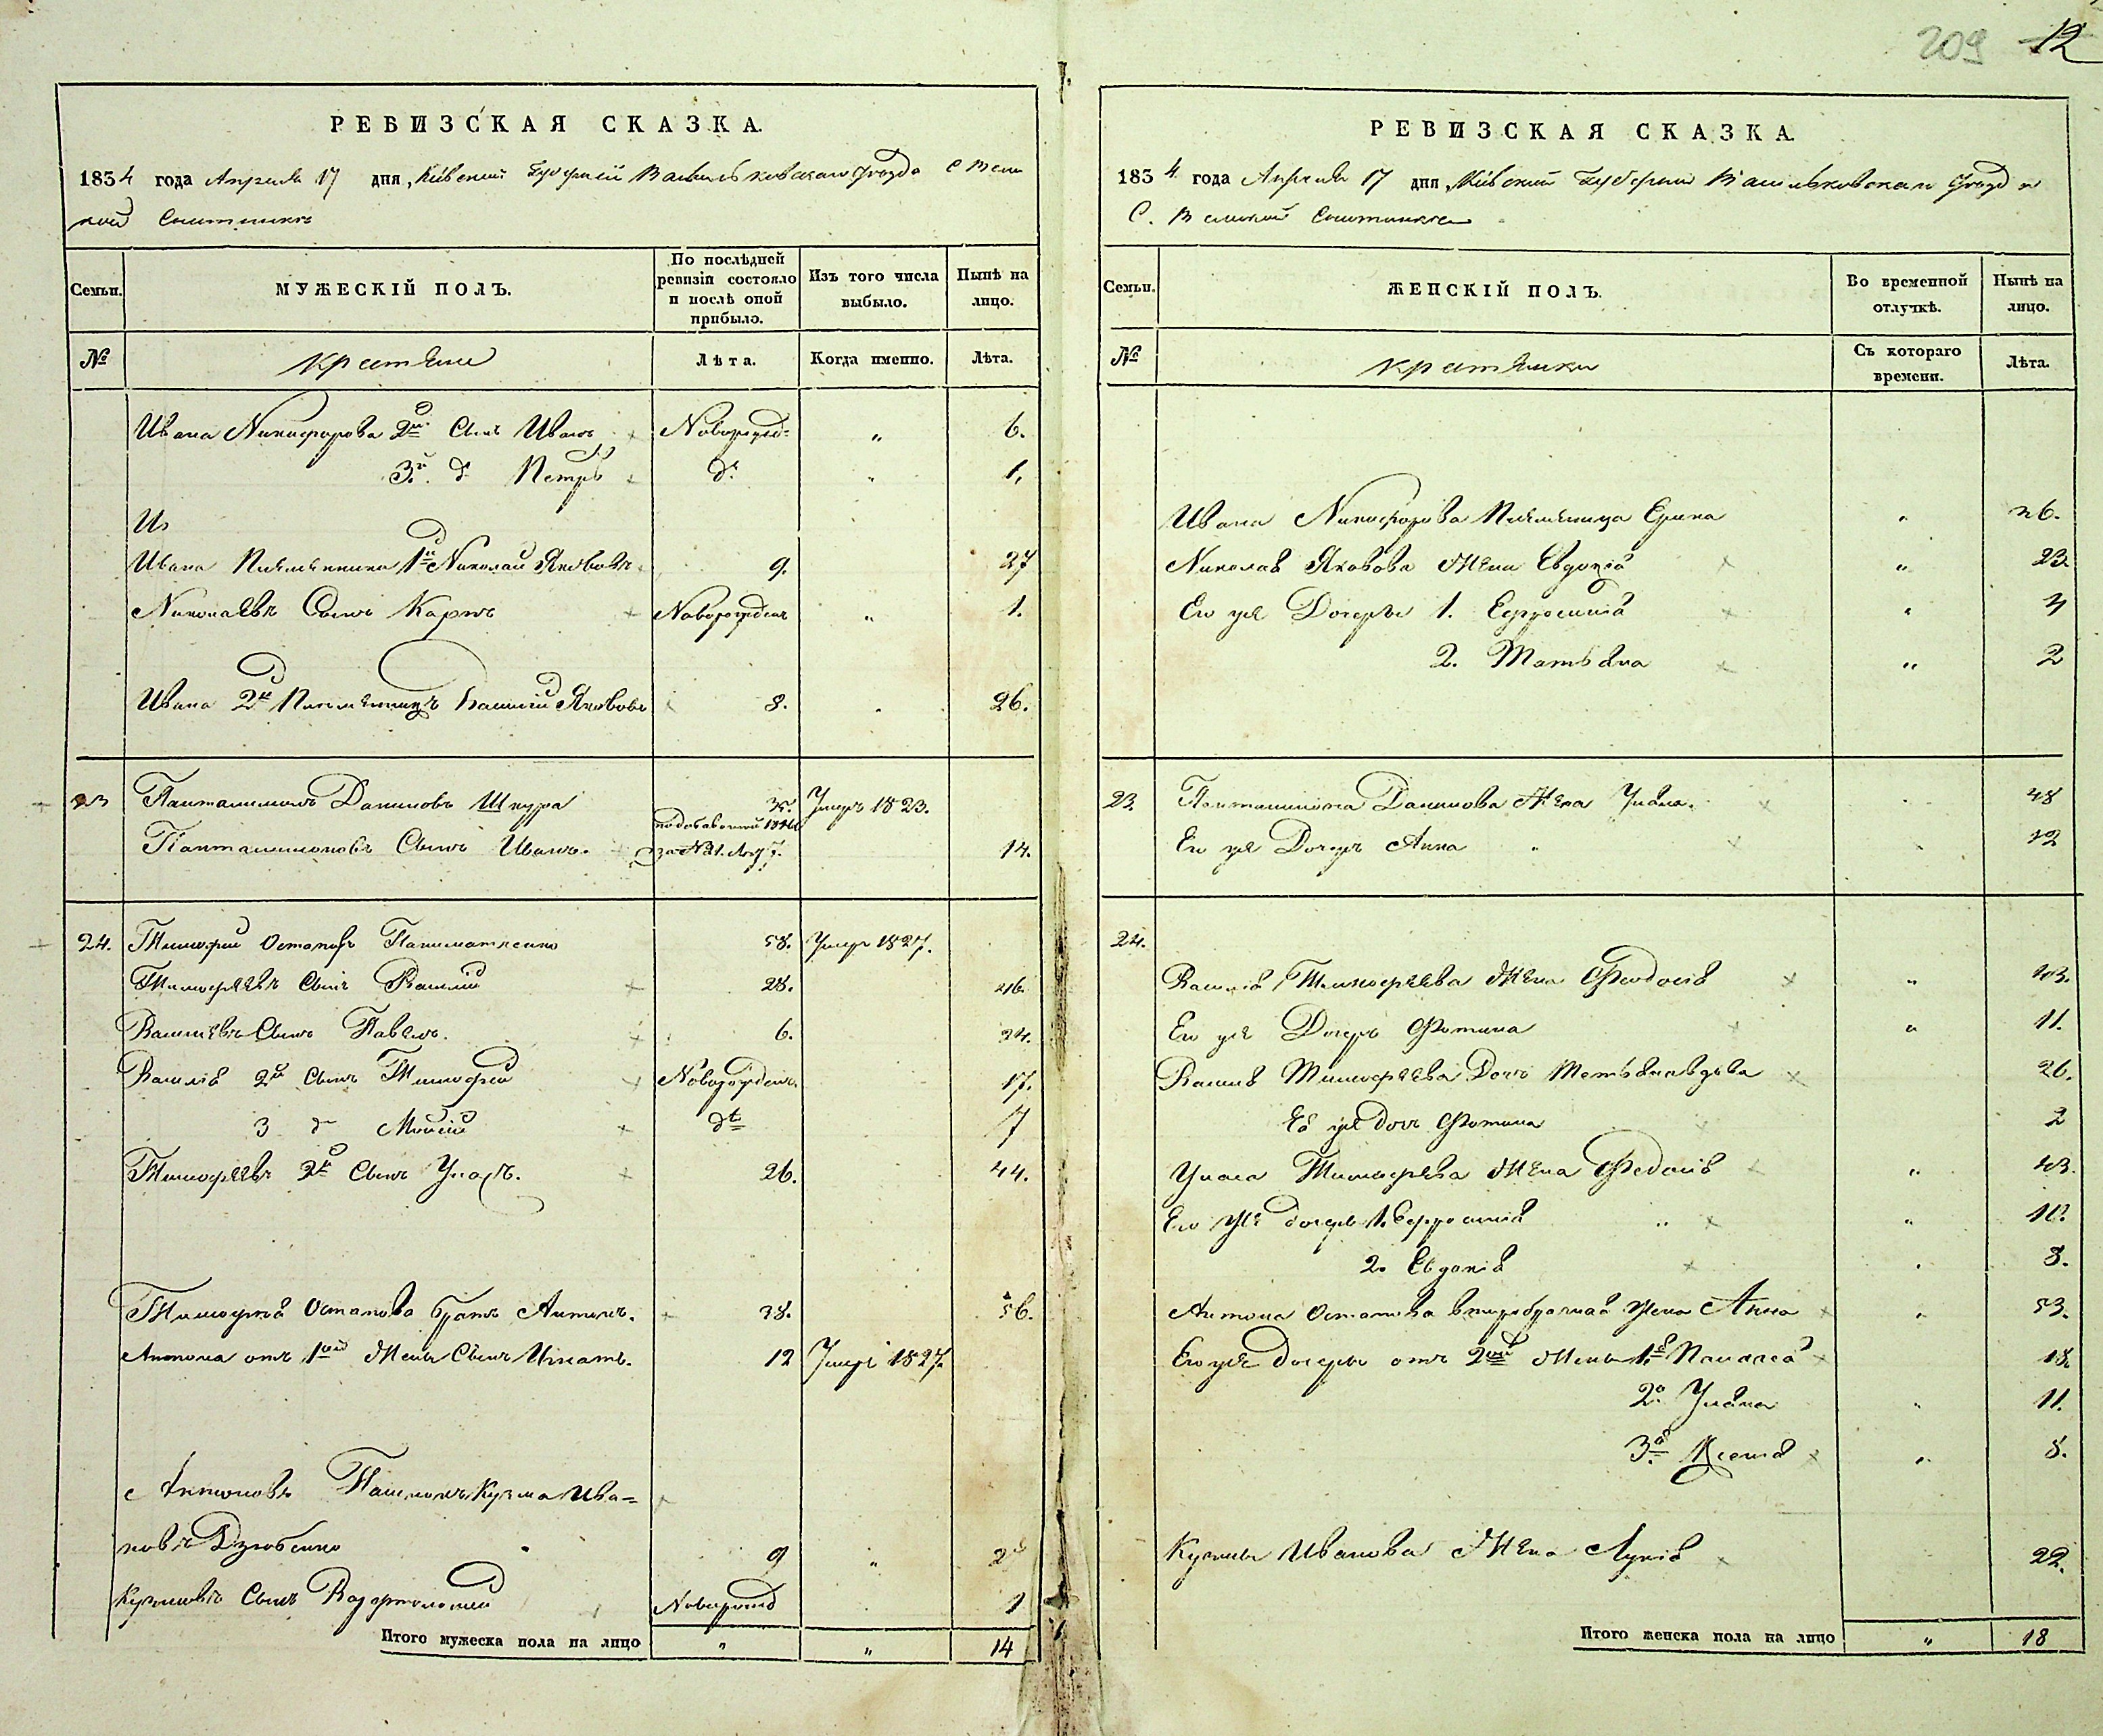 209 12
РЕВИЗСКАЯ СКАЗКА.
1834 года Апреля 17 дня, Кіевской Губерніи Васильковскаго уезда С Вели
кой Снитинки
Семьи. МУЖЕСКІЙ ПОЛЪ. По послѣдней ревизіи состояло и послѣ оной прибыло. Изъ того числа выбыло. Нынѣ на лицо.
№ Крестьяне Лѣта. Когда именно. Лѣта.
Ивана Никифорова 2й Сынъ Иванъ Новорожд= " 6.
3й д Петръ до " 1.
Ив
Ивана Племянника 1й Николай Яковлевъ 9. 27
Николаевъ Сынъ Карпъ Новорожденъ " 1.
Ивана 2й Племянникъ Василій Яковлевъ 8. 26.
23 Панталимонъ Даниловъ Шкура 35. Умеръ 1823.
Панталимоновъ Сынъ Иванъ. 14.
24. Тимофей Остаповъ 58. Умеръ 1827.
Тимофеевъ Сынъ Василій 28. 46.
Васильевъ Сынъ Павелъ. 6. 24.
Василія 2й Сынъ Тимофей Новорожденъ 17.
3 д Моисій до 7
Тимофеевъ 2й Сынъ Уласъ. 26. 44.
Тимофея Остапова братъ Антонъ. 38. 56.
Антона отъ 1ой Жены Сынъ Игнатъ. 12 Умеръ 1827
Антоновъ Пасынокъ Кузма Ива=
новъ Дзюбенко 9 "
Кузминъ Сынъ Варфоломей Новорожд 1
Итого мужеска пола на лицо " " 14
РЕВИЗСКАЯ СКАЗКА.
1834 года Апреля 17 дня, Кіевской Губерніи Васильковскаго уезда
С. Великой Снитинки
Семьи. ЖЕНСКІЙ ПОЛЪ. Во временной отлучкѣ. Нынѣ на лицо.
№ Крестьянки Съ котораго времени. Лѣта.
Ивана Никифорова Племяница Ерина " 26.
Николая Яковлева Жена Евдокія " 23.
Его же Дочери 1. Ефросинія " 4
2. Татьяна " 2
23. Панталимона Данилова Жена Ульяна. 48
Его же Дочерь Анна " 12
24.
Василія Тимофеева Жена Феодосія " 43.
Его же Дочерь Фотина " 11.
Василія Тимофеева Дочь Татьяна вдова 26.
Её же дочь Фотина 2
Уласа Тимофеева Жена Федосія " 43.
Его же дочерь 1. Ефросинія "
2. Евдокія 8.
Антона Остапова второбрачная жена Анна " 53.
Его же дочери отъ 2ой Жены 1я Палажка 18.
2я Ульяна " 11.
3я Ксенія " 8.
Кузмы Иванова Жена Лукія 22.
Итого женска пола на лицо " 18